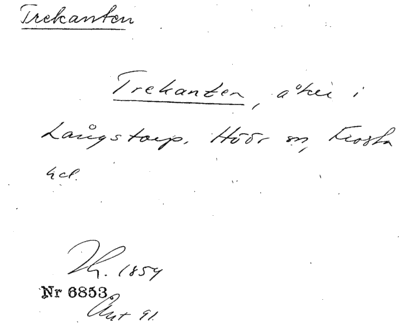 Trekanten
Trekanten, åker i
Långstorp. Höör sn, Frosta
hd.
Th. 1859
Nr 6853
Akt 91.